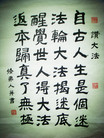 讚大法
自古人生是個迷
法輪大法揭迷底
醒覺世人得大法
返本歸真了無極